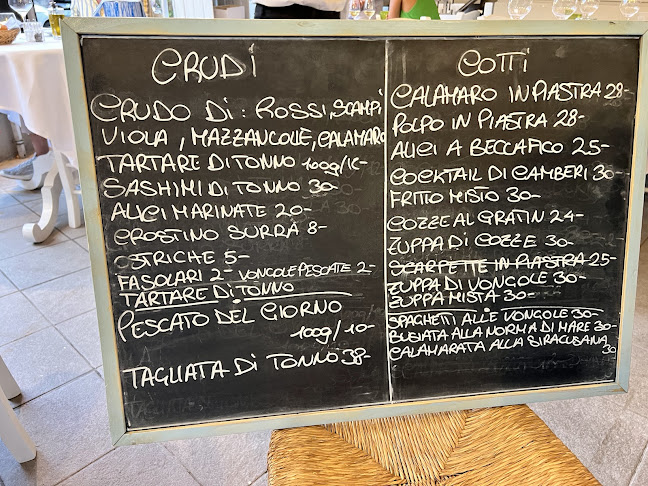 CRUDI
CRUDO DI: ROSSI, SCAMPI
VIOLA, MAZZANCOLLE, CALAMARO
TARTARE DI TONNO
SASHIMI DI TONNO 30-
ALICI MARINATE 20-
CROSTINO SURRA 8-
OSTRICHE 5-
FASOLARI 2- VONGOLE PESCATE 2-
TARTARE DI TONNO
PESCATO DEL GIORNO
100g/10-
TAGLIATA DI TONNO 38-
COTTI
CALAMARO IN PIASTRA 28-
POLPO IN PIASTRA 28-
ALICI A BECCAFICO 25-
COCKTAIL DI GAMBERI 30-
FRITTO MISTO 30-
COZZE AL GRATIN 24-
ZUPPA DI COZZE 30-
SCARPETTE IN PIASTRA 25-
ZUPPA DI VONGOLE 30-
ZUPPA MISTA 30-
SPAGHETTI ALLE VONGOLE 30-
BUSIATA ALLA NORMA DI MARE 30-
CALAMARATA ALLA SIRACUSANA 30